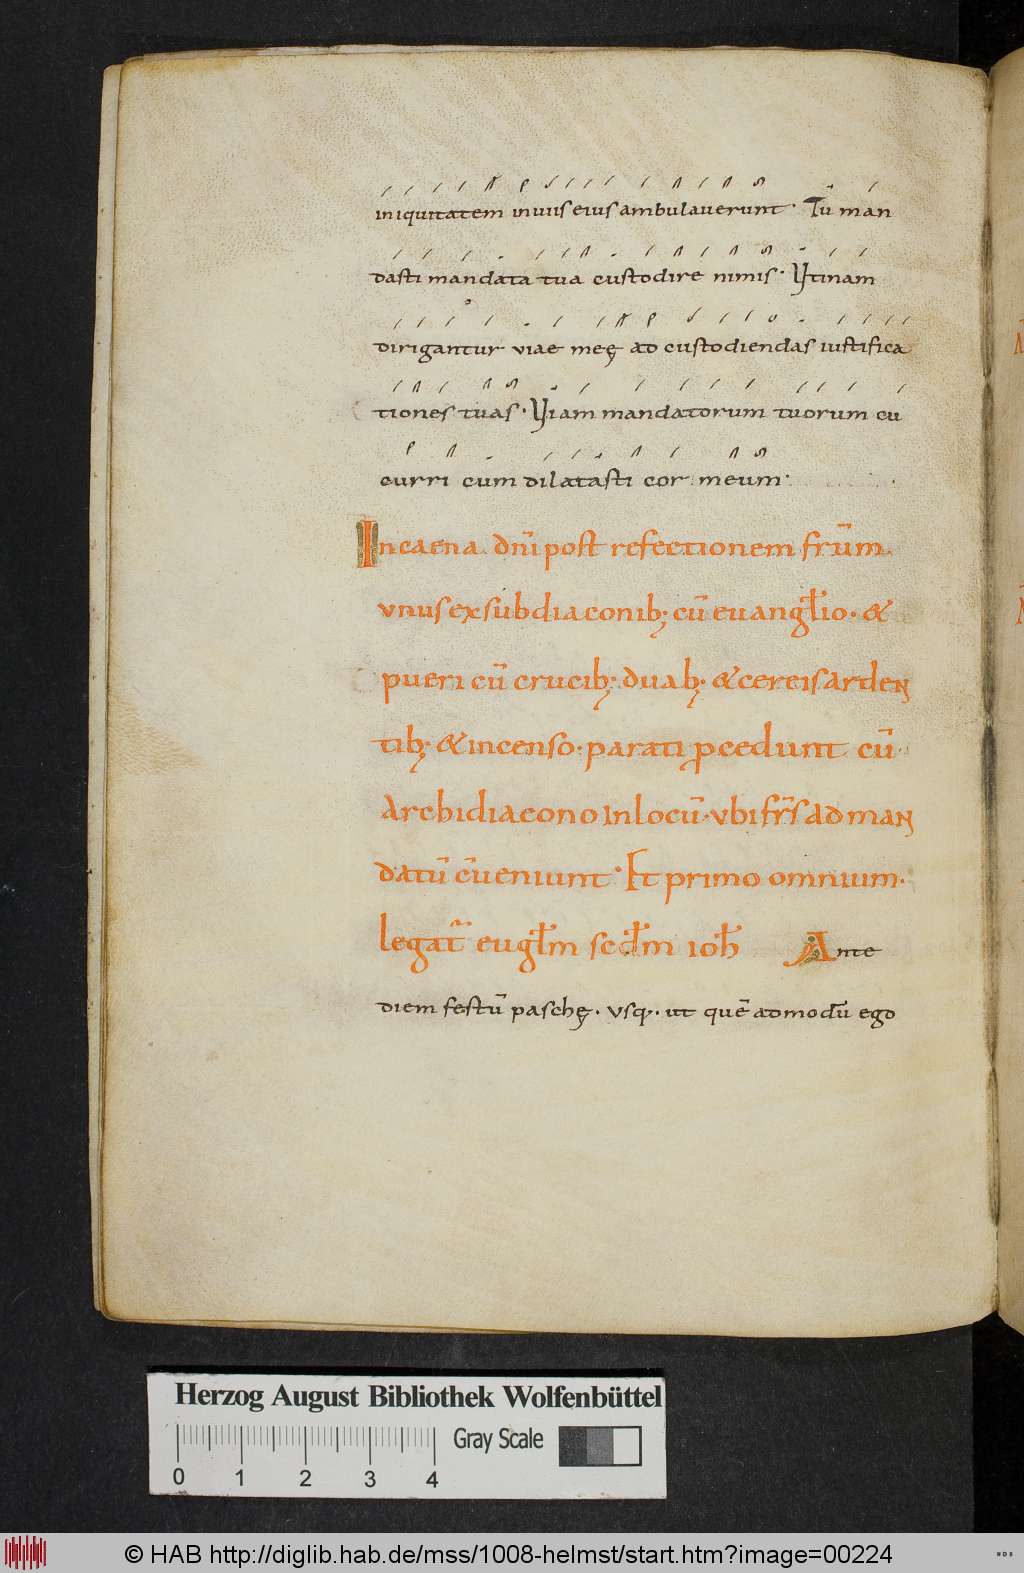 iniquitatem inuiis eius ambulauerunt· Tū man
dasti mandata tua custodire nimis· Vtinam
dirigantur viae meę ad custodiendas iustifica
tiones tuas· Viam mandatorum tuorum cu
curri cum dilatasti cor meum·
In caena dn̄i post refectionem fr̄um.
vnus ex subdiaconib; cū euangl̄io· &
pueri cū crucib; duab;· & cereis arden
tib;· & incenso· parati ꝓcedunt cū
Archidiacono in locū· vbi fr̄s ad man
datū c̄ueniunt· Et primo omnium·
legat̄ eugl̄m scd̄m ioh̄ Ante
diem festū paschę· vsq;· ut quē admodū ego
Herzog August Bibliothek Wolfenbüttel
Gray Scale
0 1 2 3 4
© HAB http://diglib.hab.de/mss/1008-helmst/start.htm?image=00224